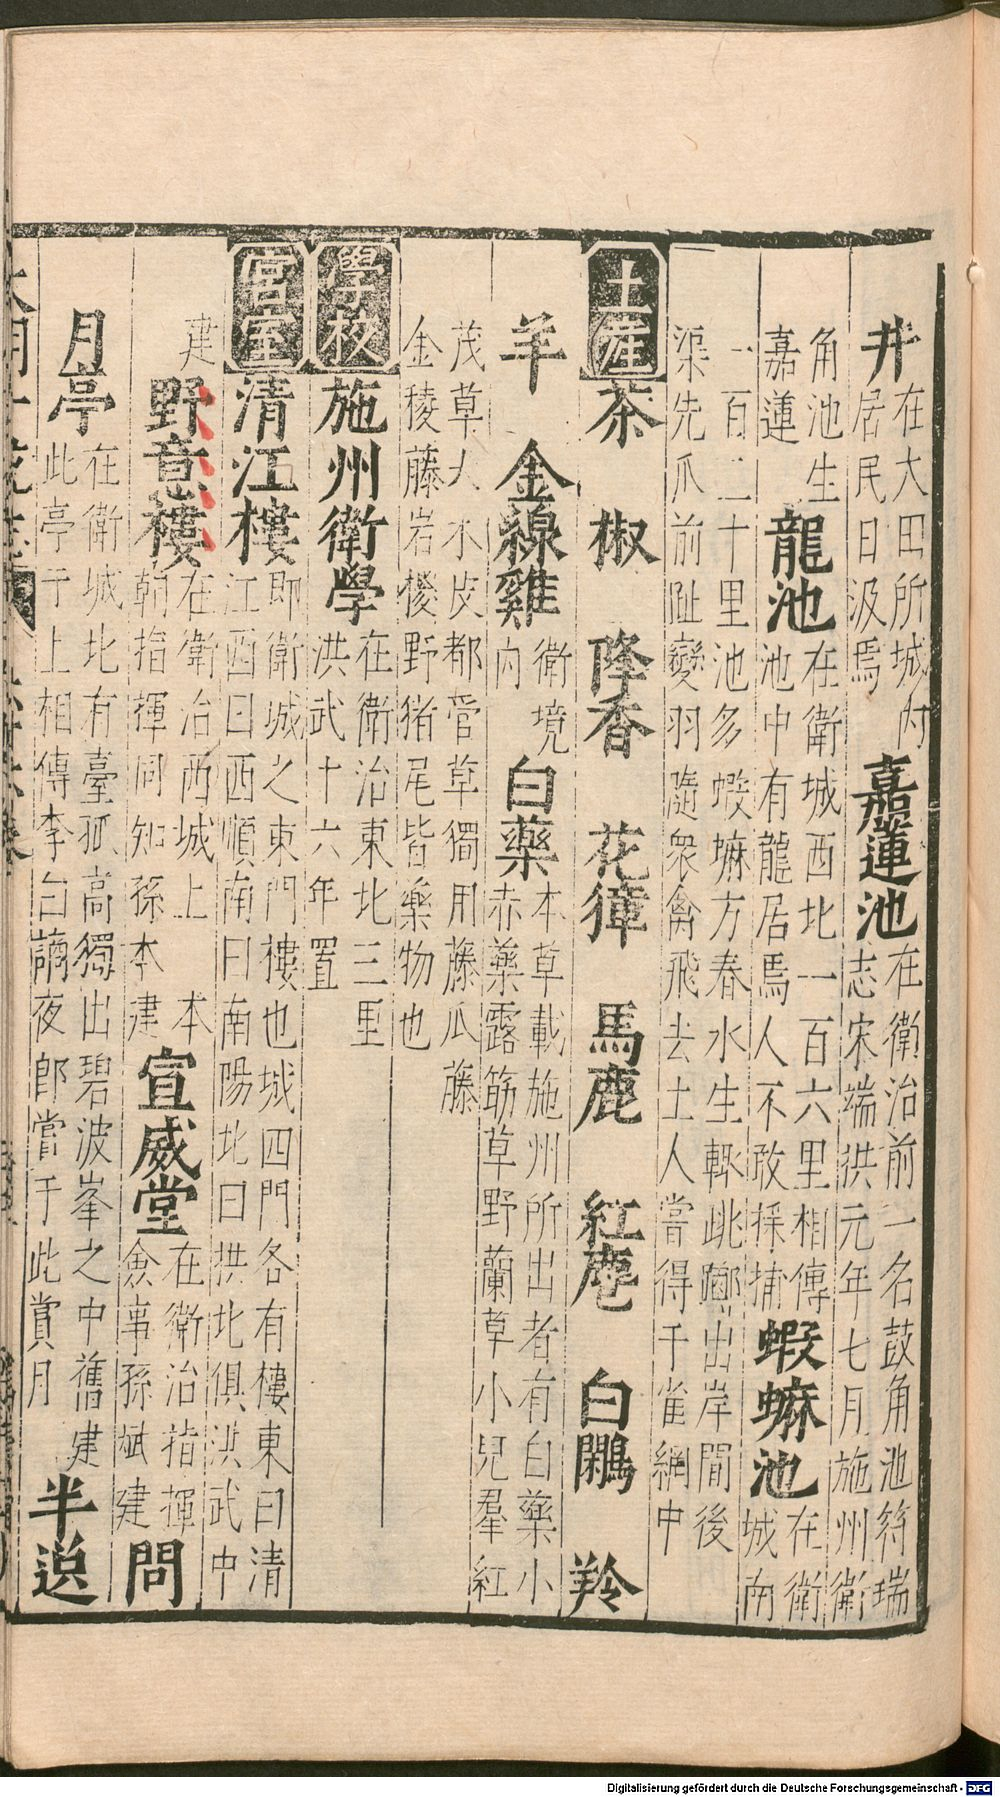 井在大田所城内居民日汲焉嘉蓮池在衛治前一名鼓角池符瑞志宋端拱元年七月施州衛
角池生嘉蓮龍池在衛城西北一百六里相傳池中有龍居焉人不敢採捕蝦䗫池在衛城南
一百二十里池多蝦䗫方春水生輒跳躑出岸間後渠先爪前趾變羽隨衆禽飛去土人嘗得于雀網中
土産茶 椒 降香 花獐 馬鹿 紅 白鷴 羚
羊 金線雞衛境内白藥本草載施州所出者有白藥小赤藥露筋草野蘭草小兒羣紅
茂草大木皮都管草獨用藤瓜藤金稜藤岩椶野猪尾皆藥物也
學校施州衛學在衛治東北三里洪武十六年置
宫室清江樓即衛城之東門樓也城四門各有樓東曰清江西曰西順南曰南陽北曰拱北俱洪武中
建野意樓在衛治西城上 本朝指揮同知孫本建宣威堂在衛治指揮僉事孫斌建問
月亭在衛城北有臺孤高獨出碧波峯之中舊建此亭于上相傳李白謫夜郎嘗于此賞月半
Digitalisierung gefördert durch die Deutsche Forschungsgemeinschaft - DFG